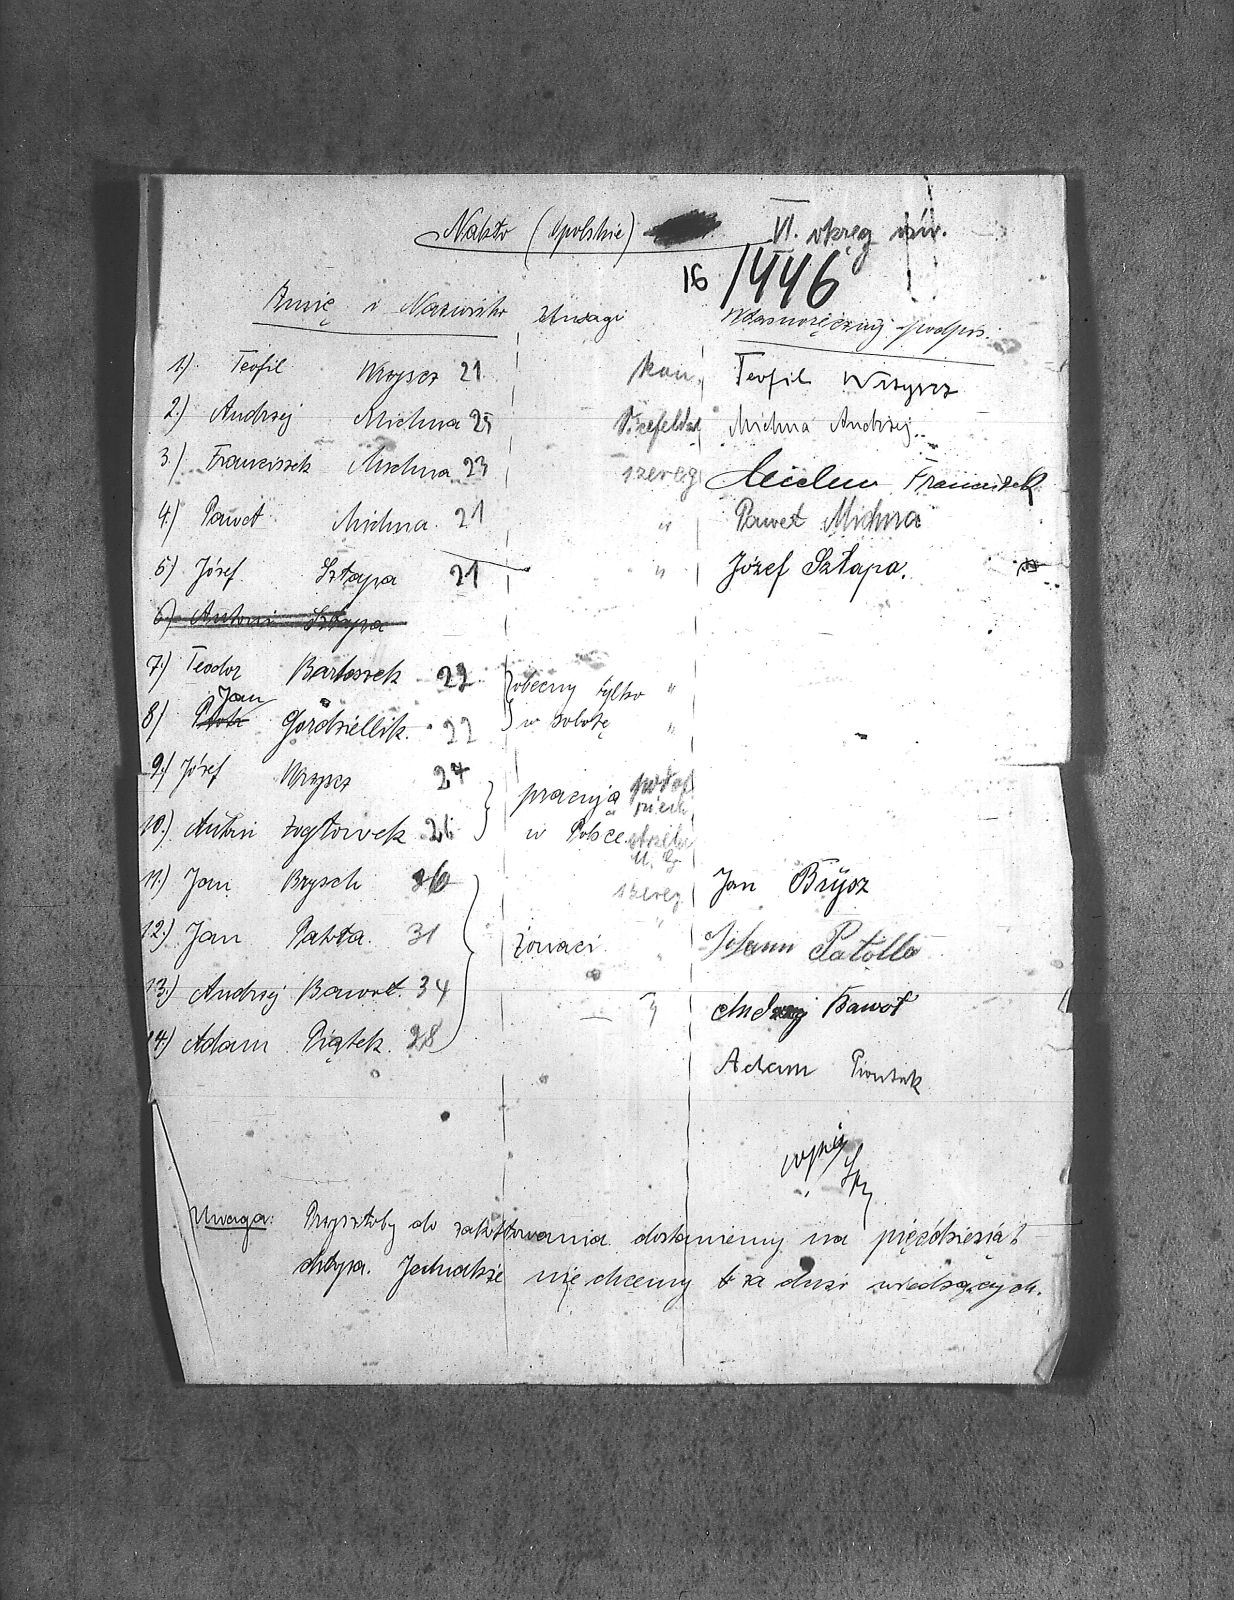 Nakło (opolskie) VI. okręg
16/1446
Imię i Nazwisko Uwagi Własnoręczny podpis.
1) Teofil Wrzyszcz 21 kan. Teofil Wrzyszcz
2.) Andrzej Michna 25 Vicefeldw. Michna Andrzej.
3.) Franciszek Michna 23 szereg Michna Franciszek
4.) Paweł Michna. 21 " Paweł Michna
5) Józef Sztapa 21 " Józef Sztapa.
6) Antoni Sztapa
7.) Teodor Bartoszek 22 obecny tylko "
Jan
8) Piotr Gordziellik. 22 w sobotę "
9.) Józef 24 pracują
10.) Antoni Zogłowek 26 w Polsce
11.) Jan Brysch 36 szereg Jan Brysz
12.) Jan Patoła. 31 żonaci " Johann Patolla
13.) Andrzej Bawoł. 34 " Andrzej Bawoł
14.) Adam Piątek. 28 Adam Piontek
Uwaga: Przyszłoby do zakotowania dostaniemy na pięćdziesiąt
chłopa. Jednakże nie chcemy za dużo wiedzących.